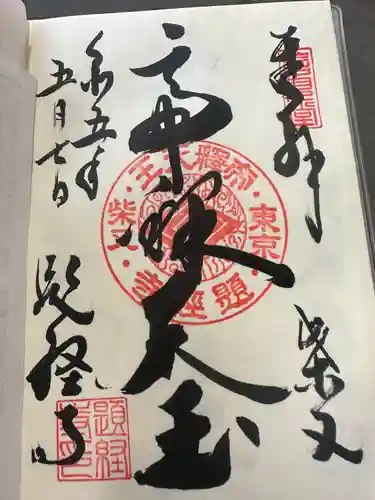 奉拝
柴又
帝釈天王
令五年
五月七日
題経寺
帝釋天王
東京
題経寺
柴又
題経